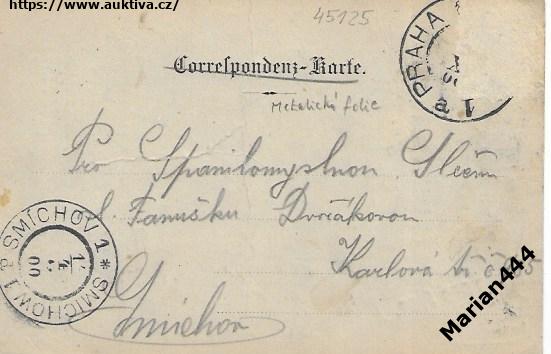 https://www.auktiva.cz/
45125
Correspondenz-Karte.
Metalická folie
PRAHA 1 a
Pro Spanilomyslnou Slečnu
sl. Fanušku Dvořákovou
Karlová tř. č. 35
Smíchov
SMÍCHOV 1 * SMICHOW 1
00
Marian444